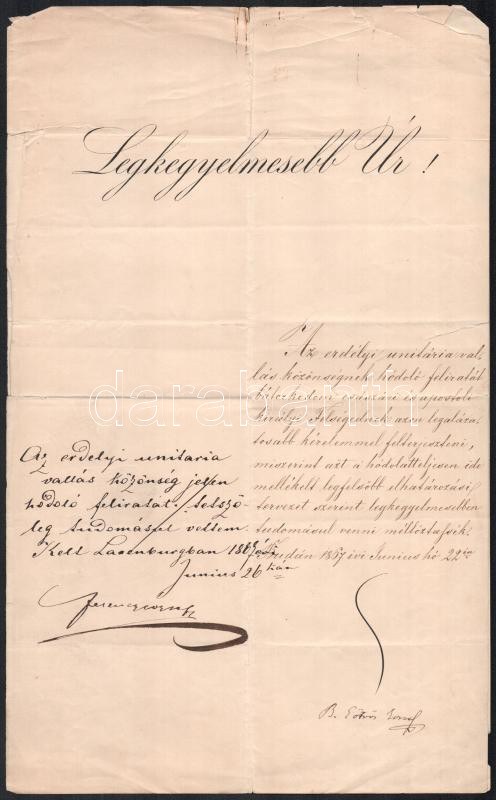 Legkegyelmesebb Úr!
Az erdélyi unitária val-
lás közönségnek hódoló feliratát
bátorkodom császári és apostoli
királyi Felségednek azon legaláza-
tosabb kérelemmel felterjeszteni,
miszerint azt a hódolatteljesen ide
mellékelt legfelsőbb elhatározási
tervezet szerent legkegyelmesebben
tudomásul venni méltóztassék.
Budán 1867 évi Junius hó 22én
B. Eötvös József
Az erdelyi unitaria
vallás közönség jelen
hódoló feliratát tetszö-
leg tudomásul vettem.
Kelt Laxenburgban 1867
Junius 26 kán
Ferencz József
darabanth